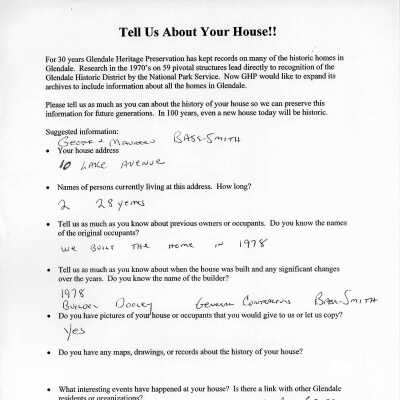 Tell Us About Your House!!
For 30 years Glendale Heritage Preservation has kept records on many of the historic homes in
Glendale. Research in the 1970's on 59 pivotal structures lead directly to recognition of the
Glendale Historic District by the National Park Service. Now GHP would like to expand its
archives to include information about all the homes in Glendale.
Please tell us as much as you can about the history of your house so we can preserve this
information for future generations. In 100 years, even a new house today will be historic.
Suggested information:
Geoff + Maureen Bass-Smith
• Your house address
10 Lake Avenue
• Names of persons currently living at this address. How long?
2 28 years
• Tell us as much as you know about previous owners or occupants. Do you know the names
of the original occupants?
We built the home in 1978
• Tell us as much as you know about when the house was built and any significant changes
over the years. Do you know the name of the builder?
1978
Builder Dooley General Contractors Bass-Smith
• Do you have pictures of your house or occupants that you would give to us or let us copy?
Yes
• Do you have any maps, drawings, or records about the history of your house?
• What interesting events have happened at your house? Is there a link with other Glendale
residents or organizations?